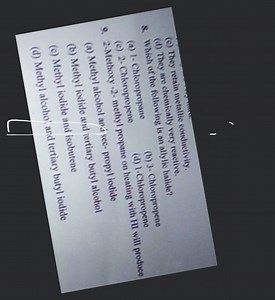 (c) They retain metallic conductivity.
(d) They are chemically very reactive.
8. Which of the following is an allylic halide?
(a) 1- Chloropropane (b) 3- Chloropropene
(c) 2- Chloropropene (d) 1-Chloropropene
9. 2-Methoxy -2- methyl propane on heating with HI will produce
(a) Methyl alcohol and sec- propyl iodide
(b) Methyl iodide and tertiary butyl alcohol
(c) Methyl iodide and isobutene
(d) Methyl alcohol and tertiary butyl iodide